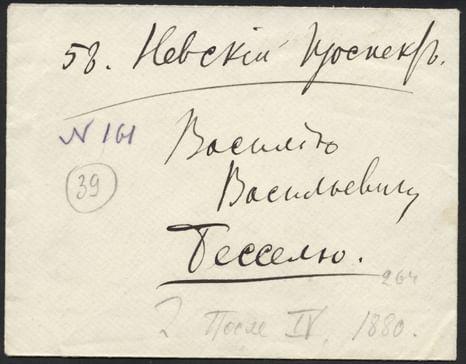 58. Невскій Проспектъ.
N 161
39
Василію
Васильевичу
Бесселю.
264
2 После IV. 1880.